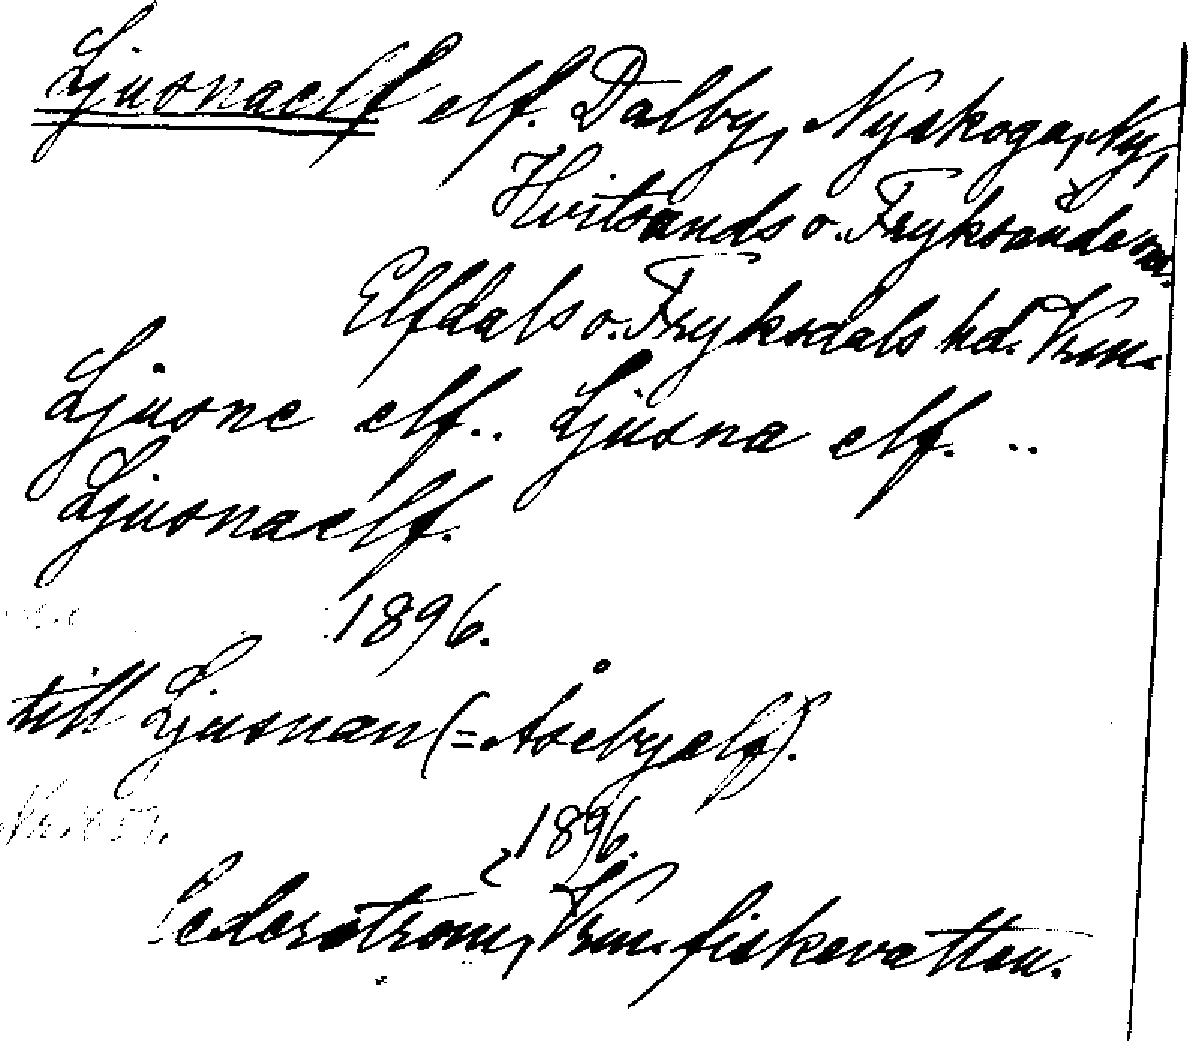 Ljusnaelf elf. Dalby, Nyskoga, Ny,
Hvitsands o. Fryksände snr.
Elfdals o. Fryksdals hd. Vrm.
Ljusne elf. . Ljusna elf. ..
Ljusnaelf.
1896.
till Ljusnan (= Åsebyelf).
1896.
Cederström, Vrm. fiskevatten.